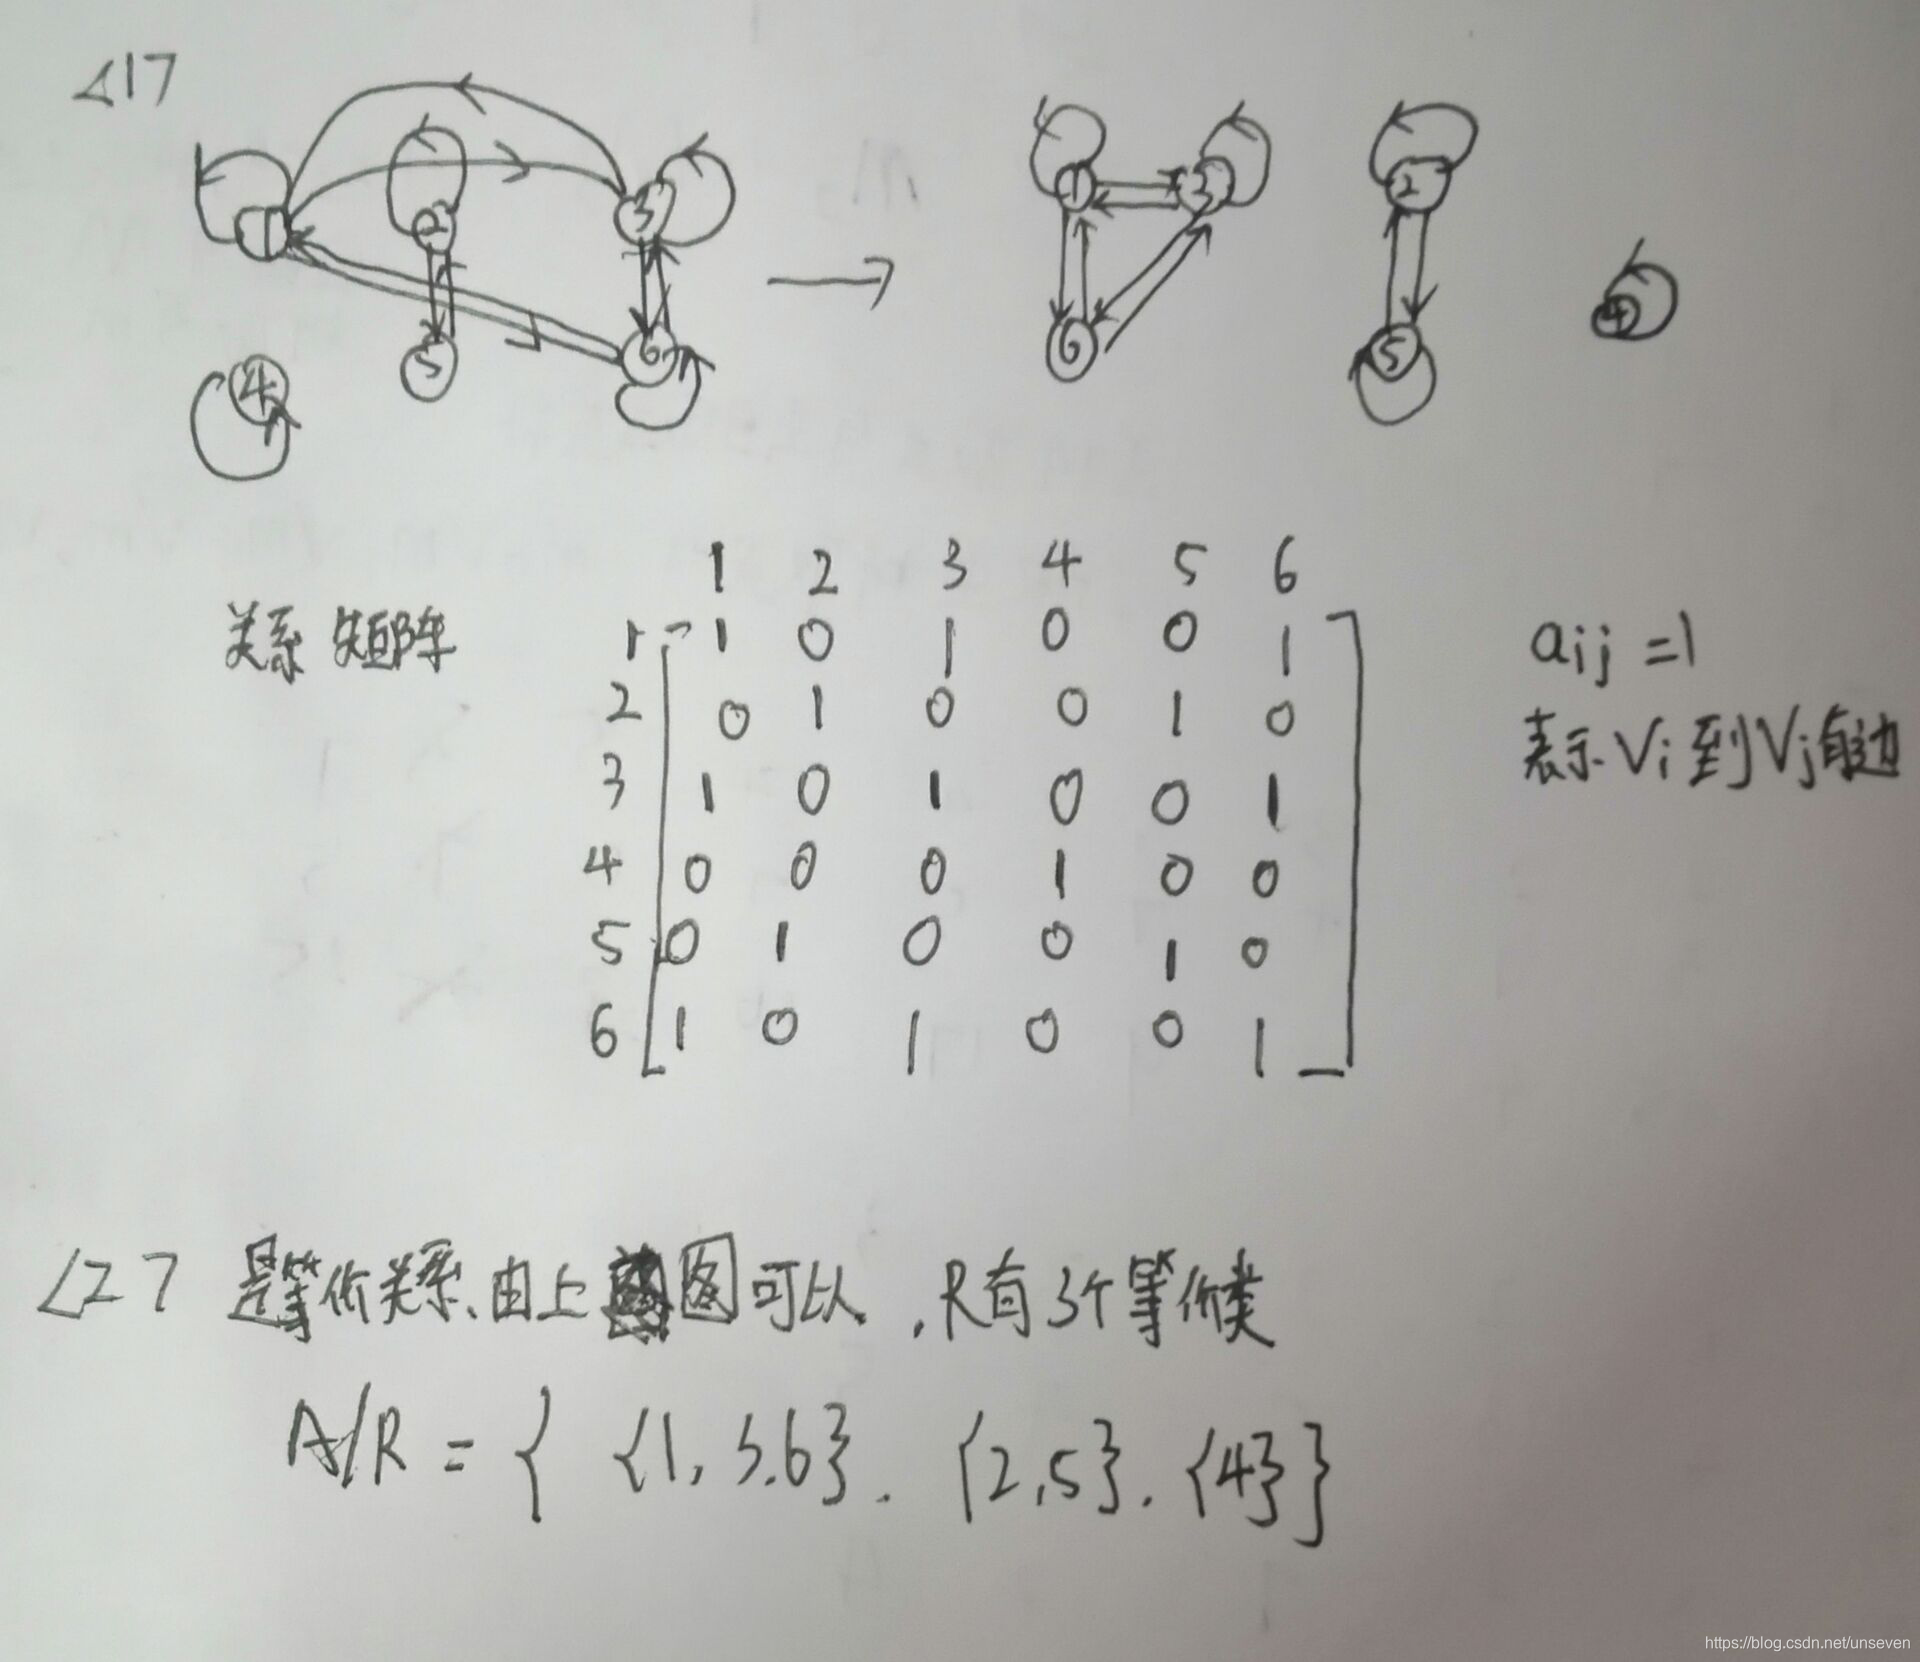 <1>
1 2 3 3 1 3 2
4 5 6 6 5 4
1 2 3 4 5 6
关系矩阵 1 1 0 1 0 0 1 aij =1
2 0 1 0 0 1 0 表示Vi到Vj有边
3 1 0 1 0 0 1
4 0 0 0 1 0 0
5 0 1 0 0 1 0
6 1 0 1 0 0 1
<2> 是等价关系.由上图可以,R有3个等价类
A/R = { {1,3.6}. {2,5}. {4} }
https://blog.csdn.net/unseven